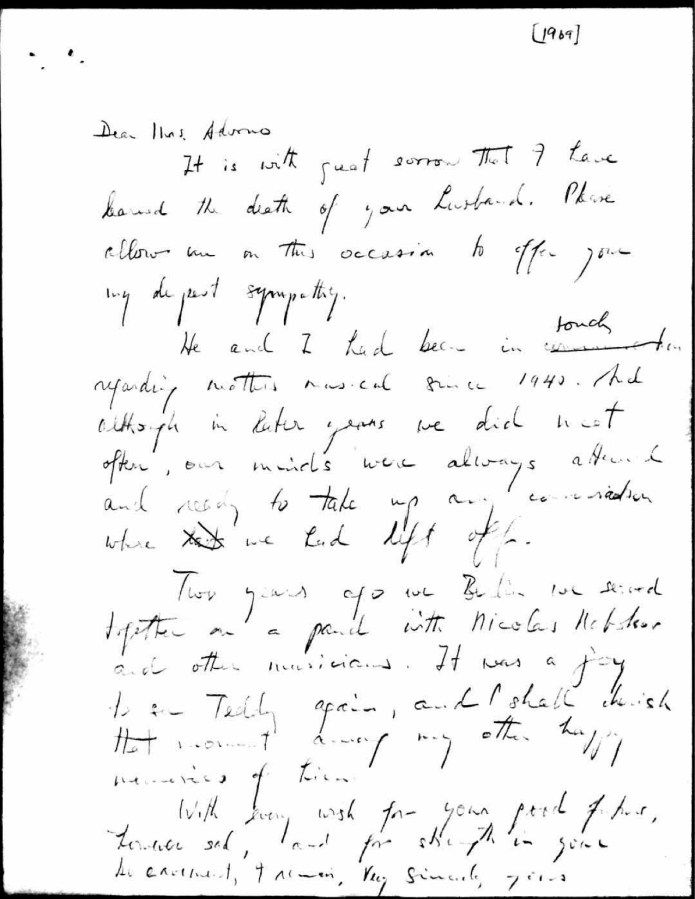 [1969]
Dear Mrs. Adorno
It is with great sorrow that I have
learned the death of your husband. Please
allow me on this occasion to offer you
my deepest sympathy.
touch
He and I had been in
regarding matters musical since 1940. And
although in later years we did meet
often, our minds were always attuned
and ready to take up any conversation
where we had left off.
Two years ago in Berlin we served
together on a panel with Nicolas Nabokov
and other musicians. It was a joy
to see Teddy again, and I shall cherish
that moment among my other happy
memories of him.
With every wish for your good future,
however sad, and for strength in your
bereavement, I remain, Very Sincerely yours